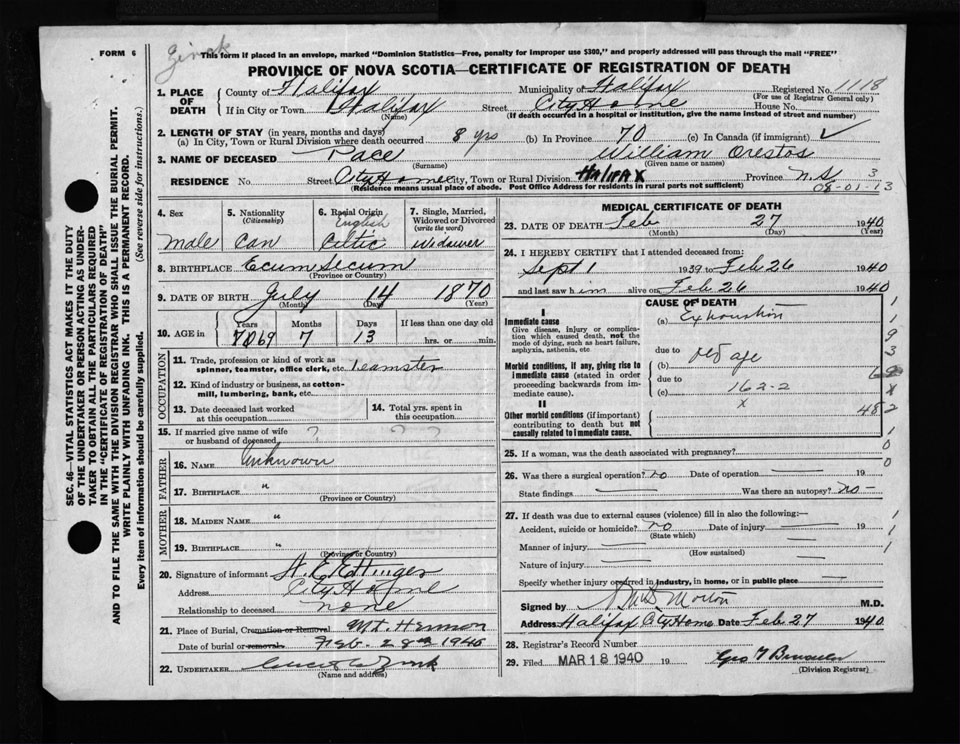 FORM 6
Zink
This form if placed in an envelope, marked "Dominion Statistics—Free, penalty for improper use $300," and properly addressed will pass through the mail "FREE"
PROVINCE OF NOVA SCOTIA—CERTIFICATE OF REGISTRATION OF DEATH
1. PLACE OF DEATH County of Halifax Municipality of Halifax Registered No. 1118
(For use of Registrar General only)
If in City or Town Halifax Street City Home House No.
(Name) (If death occurred in a hospital or institution, give the name instead of street and number)
2. LENGTH OF STAY (in years, months and days)
(a) In City, Town or Rural Division where death occurred 8 yrs (b) In Province 70 (c) In Canada (if immigrant)
3. NAME OF DECEASED Pace William Orestos
(Surname) (Given name or names)
RESIDENCE No. Street City Home City, Town or Rural Division HALIFAX Province N.S. 3
(Residence means usual place of abode. Post Office Address for residents in rural parts not sufficient) 08-01-13
4. Sex 5. Nationality (Citizenship) 6. Racial Origin 7. Single, Married, Widowed or Divorced (write the word)
English
male Can Celtic Widower
8. BIRTHPLACE Ecum Secum
(Province or Country)
9. DATE OF BIRTH July 14 1870
(Month) (Day) (Year)
10. AGE in Years Months Days If less than one day old
70 69 7 13 hrs. or min.
OCCUPATION
11. Trade, profession or kind of work as spinner, teamster, office clerk, etc. Teamster
12. Kind of industry or business, as cotton-mill, lumbering, bank, etc.
13. Date deceased last worked at this occupation 14. Total yrs. spent in this occupation
15. If married give name of wife or husband of deceased ? ? ?
FATHER
16. NAME Unknown
17. BIRTHPLACE "
(Province or Country)
MOTHER
18. MAIDEN NAME "
19. BIRTHPLACE "
(Province or Country)
20. Signature of informant A. E. Ettinger
Address City Home
Relationship to deceased none
21. Place of Burial, Cremation or Removal Mt. Hermon
Date of burial or removal Feb. 28th 1940
22. UNDERTAKER Zink
(Name and address)
MEDICAL CERTIFICATE OF DEATH
23. DATE OF DEATH Feb 27 1940
(Month) (Day) (Year)
24. I HEREBY CERTIFY that I attended deceased from:
Sept 1 1939 to Feb 26 1940
and last saw him alive on Feb 26 1940
CAUSE OF DEATH
I
Immediate cause (a) Exhaustion
Give disease, injury or complication which caused death, not the mode of dying, such as heart failure, asphyxia, asthenia, etc
due to
Morbid conditions, if any, giving rise to immediate cause (stated in order proceeding backwards from immediate cause).
(b) old age
due to
(c) 162-2
x
II
Other morbid conditions (if important) contributing to death but not causally related to immediate cause.
25. If a woman, was the death associated with pregnancy?
26. Was there a surgical operation? no Date of operation 19
State findings Was there an autopsy? no
27. If death was due to external causes (violence) fill in also the following:—
Accident, suicide or homicide? no Date of injury 19
(State which)
Manner of injury
(How sustained)
Nature of injury
Specify whether injury occurred in industry, in home, or in public place
Signed by Morton M.D.
Address Halifax City Home Date Feb 27 1940
28. Registrar's Record Number
29. Filed MAR 18 1940 19
(Division Registrar)
SEC. 46—VITAL STATISTICS ACT MAKES IT THE DUTY
OF THE UNDERTAKER OR PERSON ACTING AS UNDERTAKER TO OBTAIN ALL THE PARTICULARS REQUIRED
IN THE "CERTIFICATE OF REGISTRATION OF DEATH"
AND TO FILE THE SAME WITH THE DIVISION REGISTRAR WHO SHALL ISSUE THE BURIAL PERMIT.
WRITE PLAINLY WITH UNFADING INK. THIS IS A PERMANENT RECORD.
Every item of information should be carefully supplied. (See reverse side for instructions.)